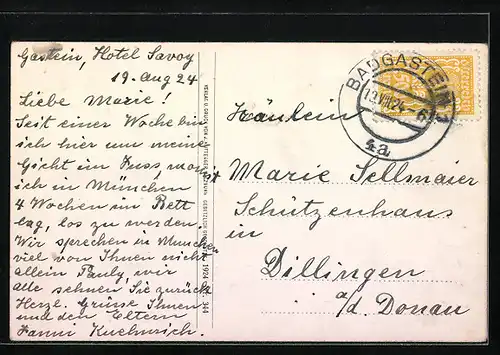 Gastein, Hotel Savoy
19. Aug 24
Liebe Marie!
Seit einer Woche bin
ich hier um meine
Gicht im Fuss womit
ich in München
4 Wochen im Bett
lag, los zu werden.
Wir sprechen in München
viel von Ihnen nicht
allein Pauly, wir
alle sehnen Sie zurück
Herzl. Grüsse Ihnen
und den Eltern
Fanni
BADGASTEIN 1
19.VIII.24
4a
Fräulein
Marie Sellmaier
Schützenhaus
in
Dillingen
a/d. Donau
1924
344